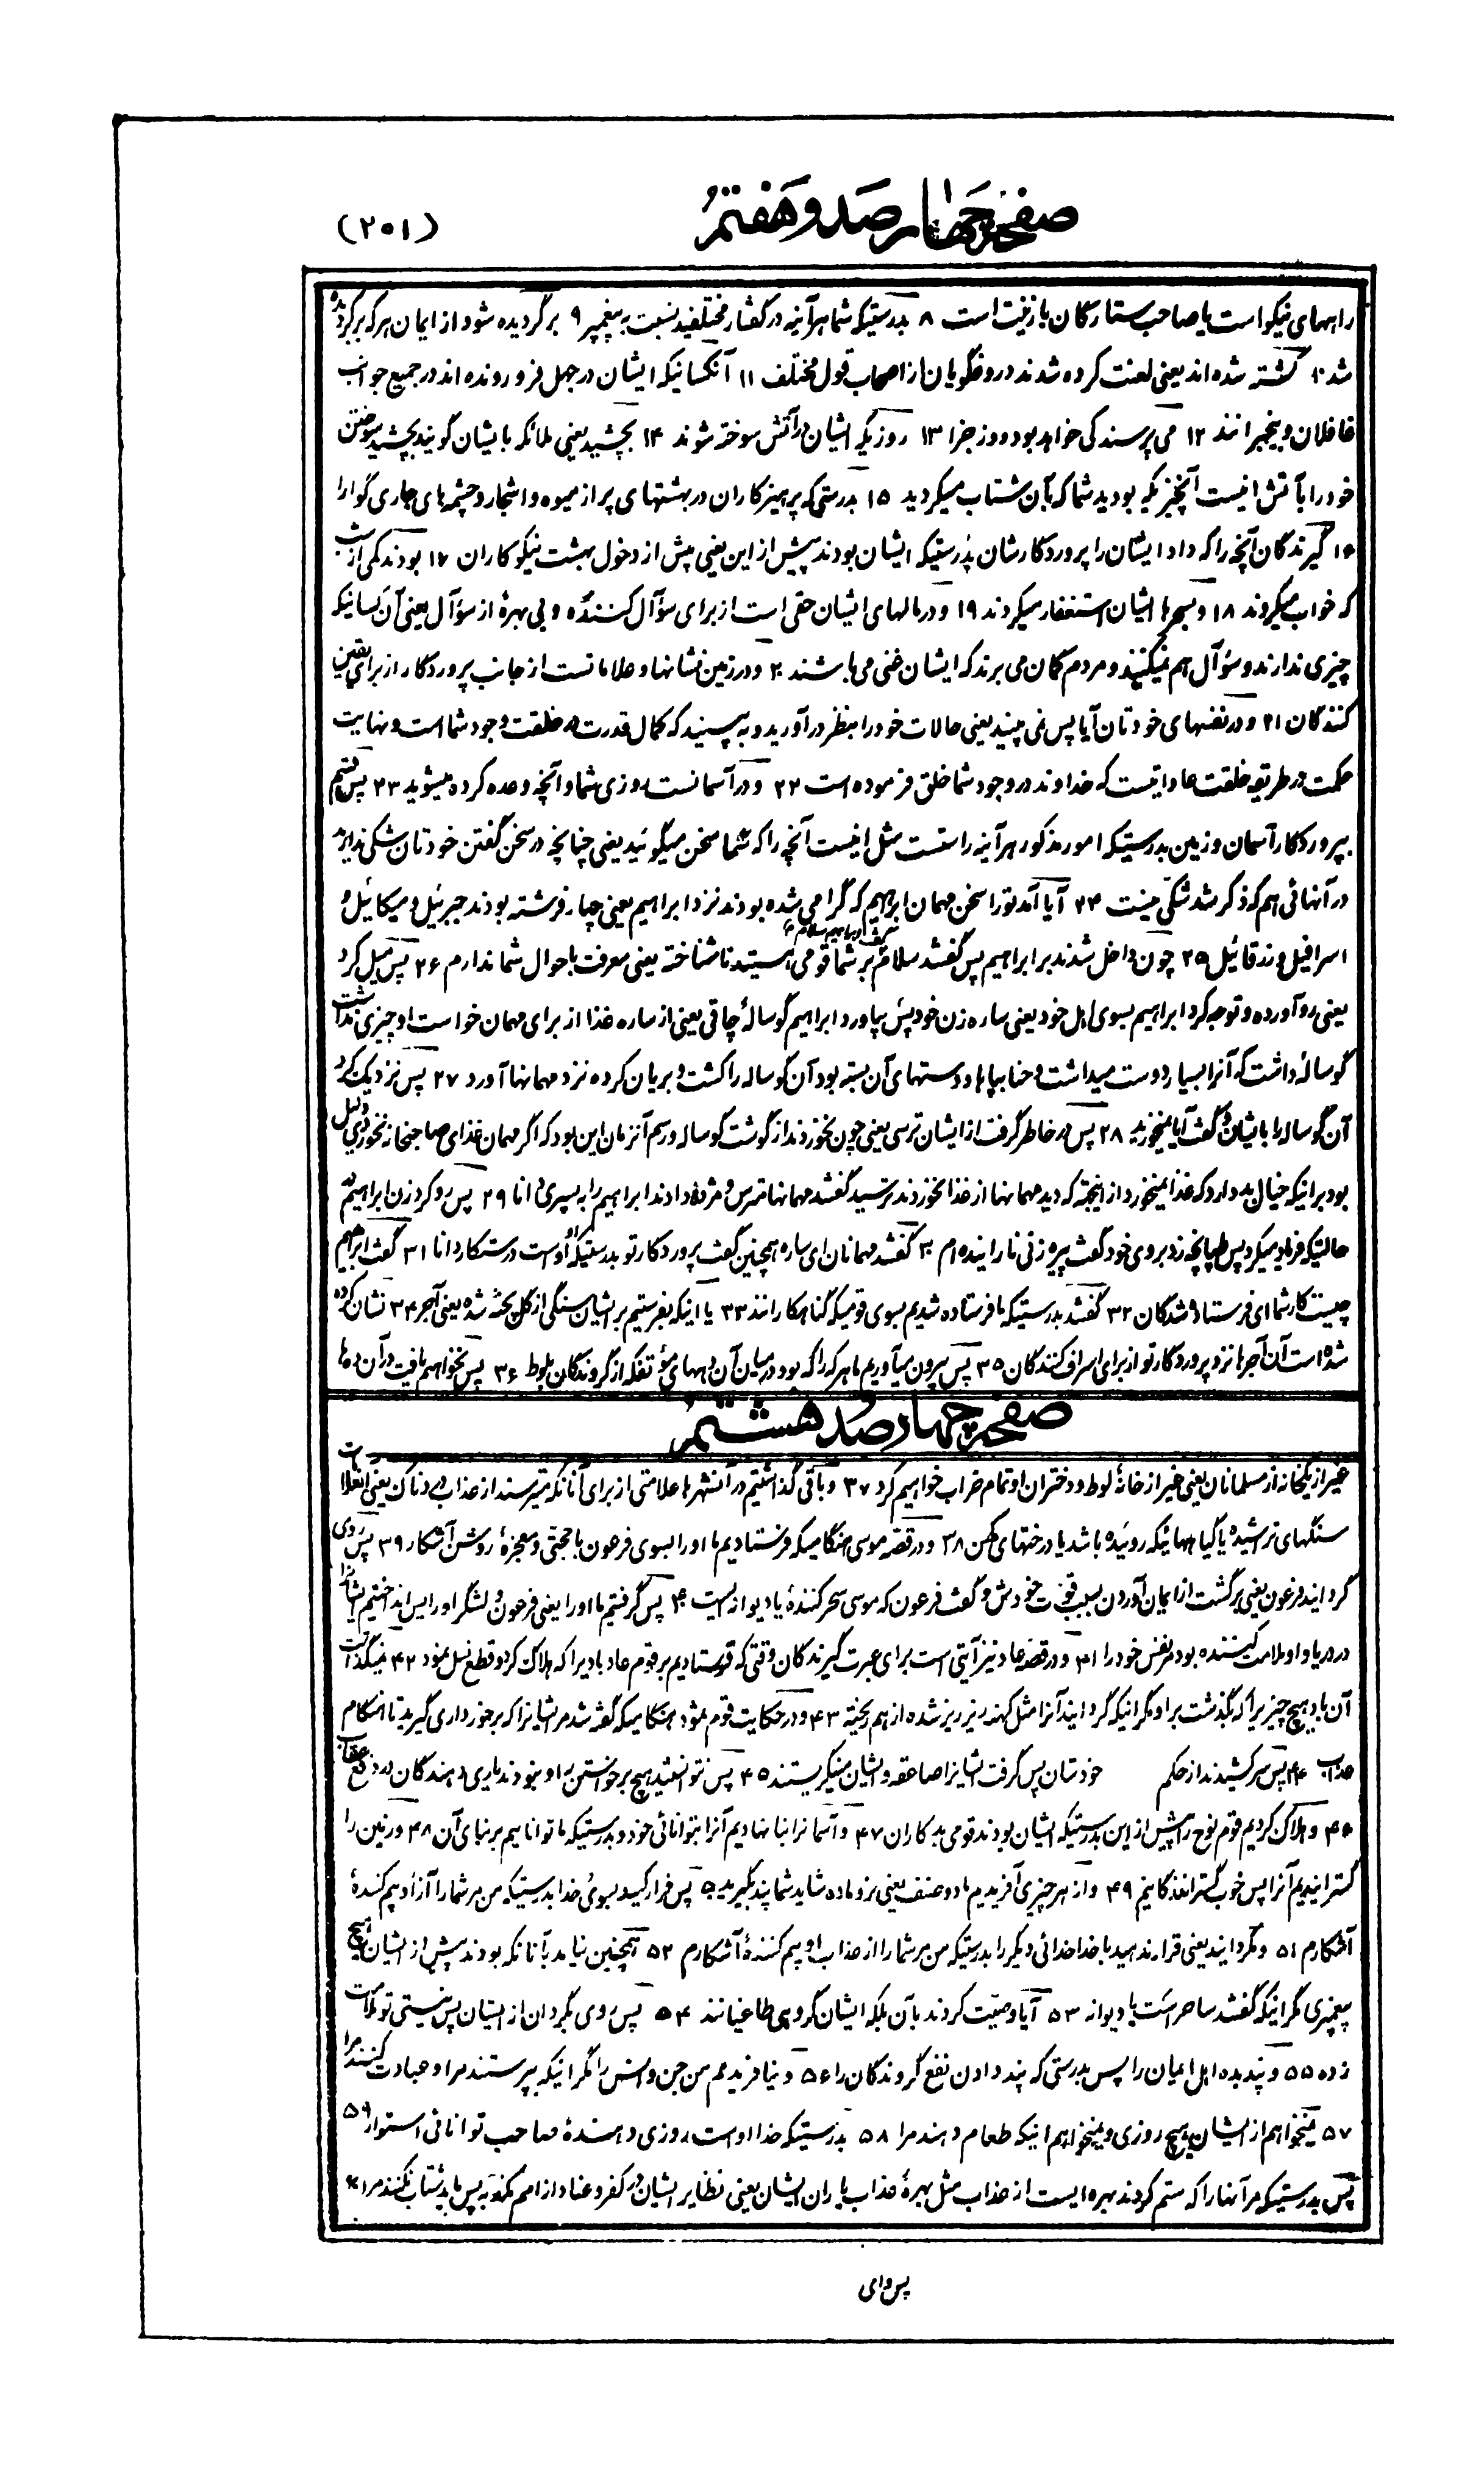 صفحه چهارصد و هفتم
(۲۰۱)
راههای نیکو است یا صاحب ستارگان با زینت است ۸ بدرستیکه شما هرآینه در گفتار مختلفید نسبت به پیغمبر ۹ برگردیده شود از ایمان هر که برگردیده
شد ۱۰ کشته شده اند یعنی لعنت کرده شدند دروغگویان از اصحاب قول مختلف ۱۱ آنکسانیکه ایشان در جهل فرو رونده اند در جمیع جوانب
غافلان و بیخبرانند ۱۲ می پرسند کی خواهد بود روز جزا ۱۳ روزیکه ایشان در آتش سوخته شوند ۱۴ بچشید یعنی ملائکه بایشان گویند بچشید سوختن
خود را بآتش اینست آنچیزیکه بودید شما که بآن شتاب میکردید ۱۵ بدرستی که پرهیزکاران در بهشتهای پر از میوه و اشجار و چشمه های جاری گوارا
۱۶ گیرندگان آنچه را که داد ایشان را پروردگارشان بدرستیکه ایشان بودند پیش از این یعنی پیش از دخول بهشت نیکوکاران ۱۷ بودند کمی از شب
که خواب میکردند ۱۸ و بسحرها ایشان استغفار میکردند ۱۹ و در مالهای ایشان حقی است از برای سؤآل کننده و بی بهره از سؤآل یعنی آن کسانیکه
چیزی ندارند و سؤآل هم نمیکنند و مردم گمان می برند که ایشان غنی می باشند ۲۰ و در زمین نشانها و علاماتست از جانب پروردگار از برای یقین
کنندگان ۲۱ و در نفسهای خودتان آیا پس نمی بینید یعنی حالات خود را بنظر درآورید و به بینید که کمال قدرت در خلقت وجود شما است و نهایت
حکمت در طریقه خلقت عاداتیست که خداوند در وجود شما خلق فرموده است ۲۲ و در آسمانست روزی شما و آنچه وعده کرده میشوید ۲۳ پس قسم
بپروردگار آسمان و زمین بدرستیکه امور مذکور هرآینه راستست مثل اینست آنچه را که شما سخن میگوئید یعنی چنانچه در سخن گفتن خودتان شکی ندارید
در آنهائی هم که ذکر شد شکی نیست ۲۴ آیا آمد تو را سخن مهمان ابراهیم که گرامی شده بودند نزد ابراهیم یعنی چهار فرشته بودند جبرئیل و میکائیل و
اسرافیل و زدقائیل ۲۵ چون داخل شدند بر ابراهیم پس گفتند سلام گفت ابراهیم سلام بر شما قومی هستید ناشناخته یعنی معرفت باحوال شما ندارم ۲۶ پس میل کرد
یعنی رو آورده و توجه کرد ابراهیم بسوی اهل خود یعنی ساره زن خود پس بیاورد ابراهیم گوسالهٔ چاقی یعنی از ساره غذا از برای مهمان خواست او چیزی نداشت
گوسالهٔ داشت که آنرا بسیار دوست میداشت و حنا بپاها و دستهای آن بسته بود آن گوساله را کشت و بریان کرده نزد مهمانها آورد ۲۷ پس نزدیک کرد
آن گوساله را بایشان و گفت آیا نمیخورید ۲۸ پس در خاطر گرفت از ایشان ترسی یعنی چون نخوردند از گوشت گوساله و رسم آنزمان این بود که اگر مهمان غذای صاحبخانه نخوردی دلیل
بود بر اینکه خیال بد دارد که غذا نمیخورد از اینجهة که دید مهمانها از غذا نخوردند ترسید گفتند مهمانها مترس و مژده دادند ابراهیم را به پسری دانا ۲۹ پس رو کرد زن ابراهیم در
حالتیکه فریاد میکرد پس طپانچه زد بروی خود گفت پیره زنی نازاینده ام ۳۰ گفتند مهمانان ای ساره همچنین گفت پروردگار تو بدرستیکه او اوست درستکار دانا ۳۱ گفت ابراهیم
چیست کار شما ای فرستاده شدگان ۳۲ گفتند بدرستیکه ما فرستاده شدیم بسوی قومیکه گناهکارانند ۳۳ یا اینکه بفرستیم بر ایشان سنگی از گل پخته شده یعنی آجر ۳۴ نشان کرده
شده است آن آجرها نزد پروردگار تو از برای اسراف کنندگان ۳۵ پس بیرون میآوریم ما هر که را که بود در میان آن دههای مؤتفکه از گروندگان بلوط ۳۶ پس نخواهیم یافت در آن ده ها
صفحه چهارصد و هشتم
غیر از یکخانه از مسلمانان یعنی غیر از خانهٔ لوط و دختران او تمام خراب خواهیم کرد ۳۷ و باقی گذاشتیم در آنشهرها علامتی از برای آنانکه میترسند از عذاب دردناک یعنی انقلابات
سنگهای تراشیده یا گیاههائیکه روئیده باشد یا درختهای کهن ۳۸ و در قصهٔ موسی هنگامیکه فرستادیم ما او را بسوی فرعون با حجتی و معجزهٔ روشن آشکار ۳۹ پس روی
گردانید فرعون یعنی برگشت از ایمان آوردن بسبب قوت خودش و گفت فرعون که موسی سحر کنندهٔ یا دیوانه ایست ۴۰ پس گرفتیم ما او را یعنی فرعون و لشگر او را پس انداختیم ایشانرا
در دریا و او ملامت کننده بود نفس خود را ۴۱ و در قصهٔ عاد نیز آیتی است برای عبرت گیرندگان وقتی که فرستادیم بر قوم عاد بادیرا که هلاک کرد و قطع نسل نمود ۴۲ نمیگذاشت
آن باد هیچ چیزیرا که بگذشت بر او مگر اینکه گردانید آنرا مثل کهنه ریز ریز شده از هم ریخته ۴۳ و در حکایت قوم ثمود هنگامیکه گفته شد مر ایشانرا که برخورداری گیرید تا هنگام
عذاب ۴۴ پس سرکشیدند از حکم خودشان پس گرفت ایشانرا صاعقه و ایشان مینگریستند ۴۵ پس نتوانستند هیچ برخواستن را و نبودند یاری دهندگان در دفع عقاب
۴۶ و هلاک کردیم قوم نوح را پیش از این بدرستیکه ایشان بودند قومی بدکاران ۴۷ و آسمانرا بنا نهادیم آنرا بتوانائی خود و بدرستیکه ما توانا هستیم بر بنای آن ۴۸ و زمین را
گسترانیدیم آنرا پس خوب گسترانندگانیم ۴۹ و از هر چیزی آفریدیم ما دو صنف یعنی نر و ماده شاید شما پند بگیرید ۵۰ پس فرار کنید بسوی خدا بدرستیکه من مر شما را از او بیم کنندهٔ
آشکارم ۵۱ و مگردانید یعنی قرار ندهید با خدا خدائی دیگر را بدرستیکه من مر شما را از عذاب او بیم کنندهٔ آشکارم ۵۲ همچنین نیامد بآنانکه بودند پیش از ایشان هیچ
پیغمبری مگر اینکه گفتند ساحر است یا دیوانه ۵۳ آیا وصیت کردند بآن بلکه ایشان گروهی طاغیانند ۵۴ پس روی بگردان از ایشان پس نیستی تو ملامت
زده ۵۵ و پند بده اهل ایمان را پس بدرستی که پند دادن نفع گروندگان را ۵۶ و نیافریدم من جن و انس را مگر اینکه بپرستند مرا و عبادت کنند مرا
۵۷ نمیخواهم از ایشان هیچ روزی و نمیخواهم اینکه طعام دهند مرا ۵۸ بدرستیکه خدا اوست روزی دهندهٔ صاحب توانائی استوار ۵۹
پس بدرستیکه مر آنها را که ستم کردند بهره ایست از عذاب مثل بهرهٔ عذاب یاران ایشان یعنی نظایر ایشان در کفر و عناد از امم گذشته پس باید شتاب نکنند مرا ۶۰
پس وای